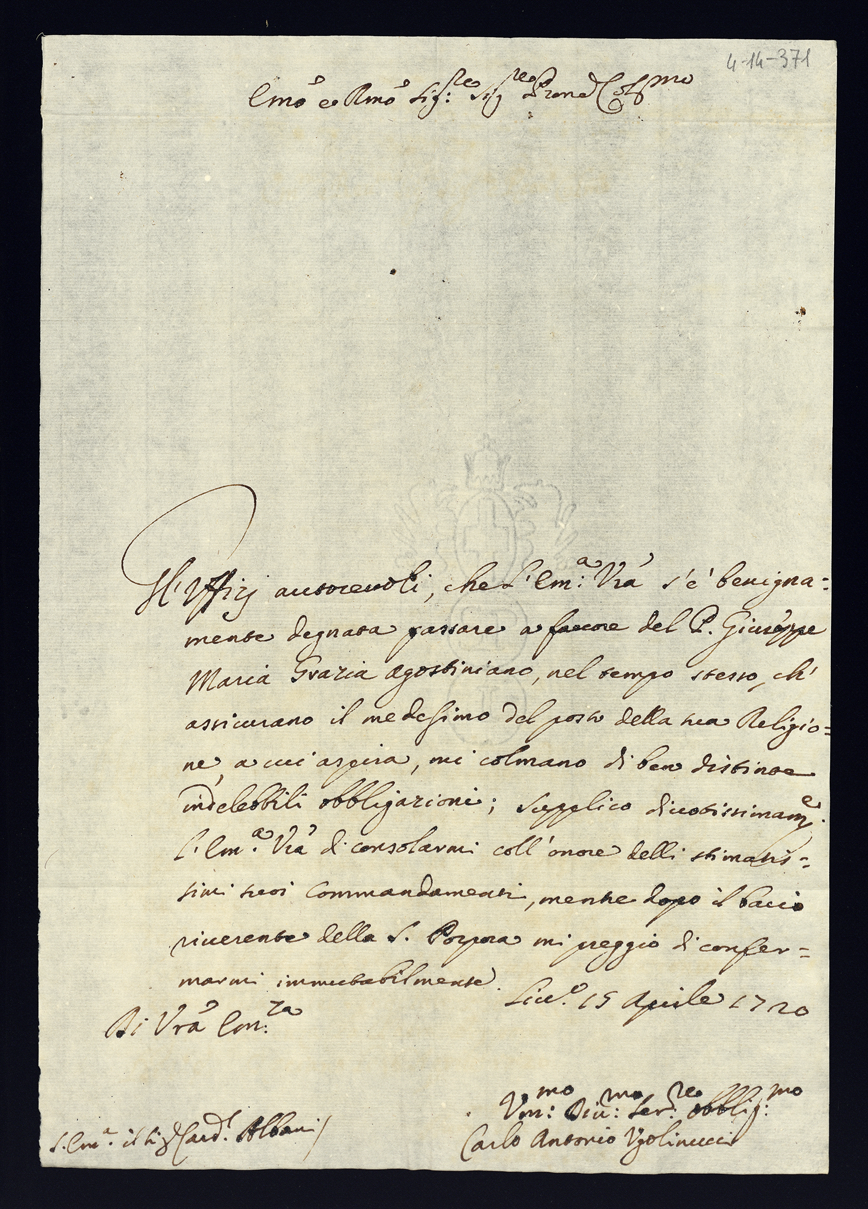 4-14-371
Emo e Rmo Sig:re Sig:re Prone Colmo
Gl'Uffizj autorevoli, che l'Em:a Vra s'è benigna=
mente degnata passare a favore del P. Giuseppe
Maria Grazia Agostiniano, nel tempo stesso, ch'
assicurano il medesimo del posto della sua Religio=
ne, a cui aspira, mi colmano di ben distinte
indelebbili obbligazioni; supplico divotissimam.e
l'Em:a Vra di consolarmi coll'onore delli stimatis=
simi suoi Commandamenti, mentre dopo il bacio
riverente della S. Porpora mi preggio di confer=
marmi immutabilmente.
15 Aprile 1720
Di Vra Em:za
Vm:mo Div:mo Ser:re obblig:mo
S. Em:a il Sig. Card.l Albani
Carlo Antonio Vgolinucci